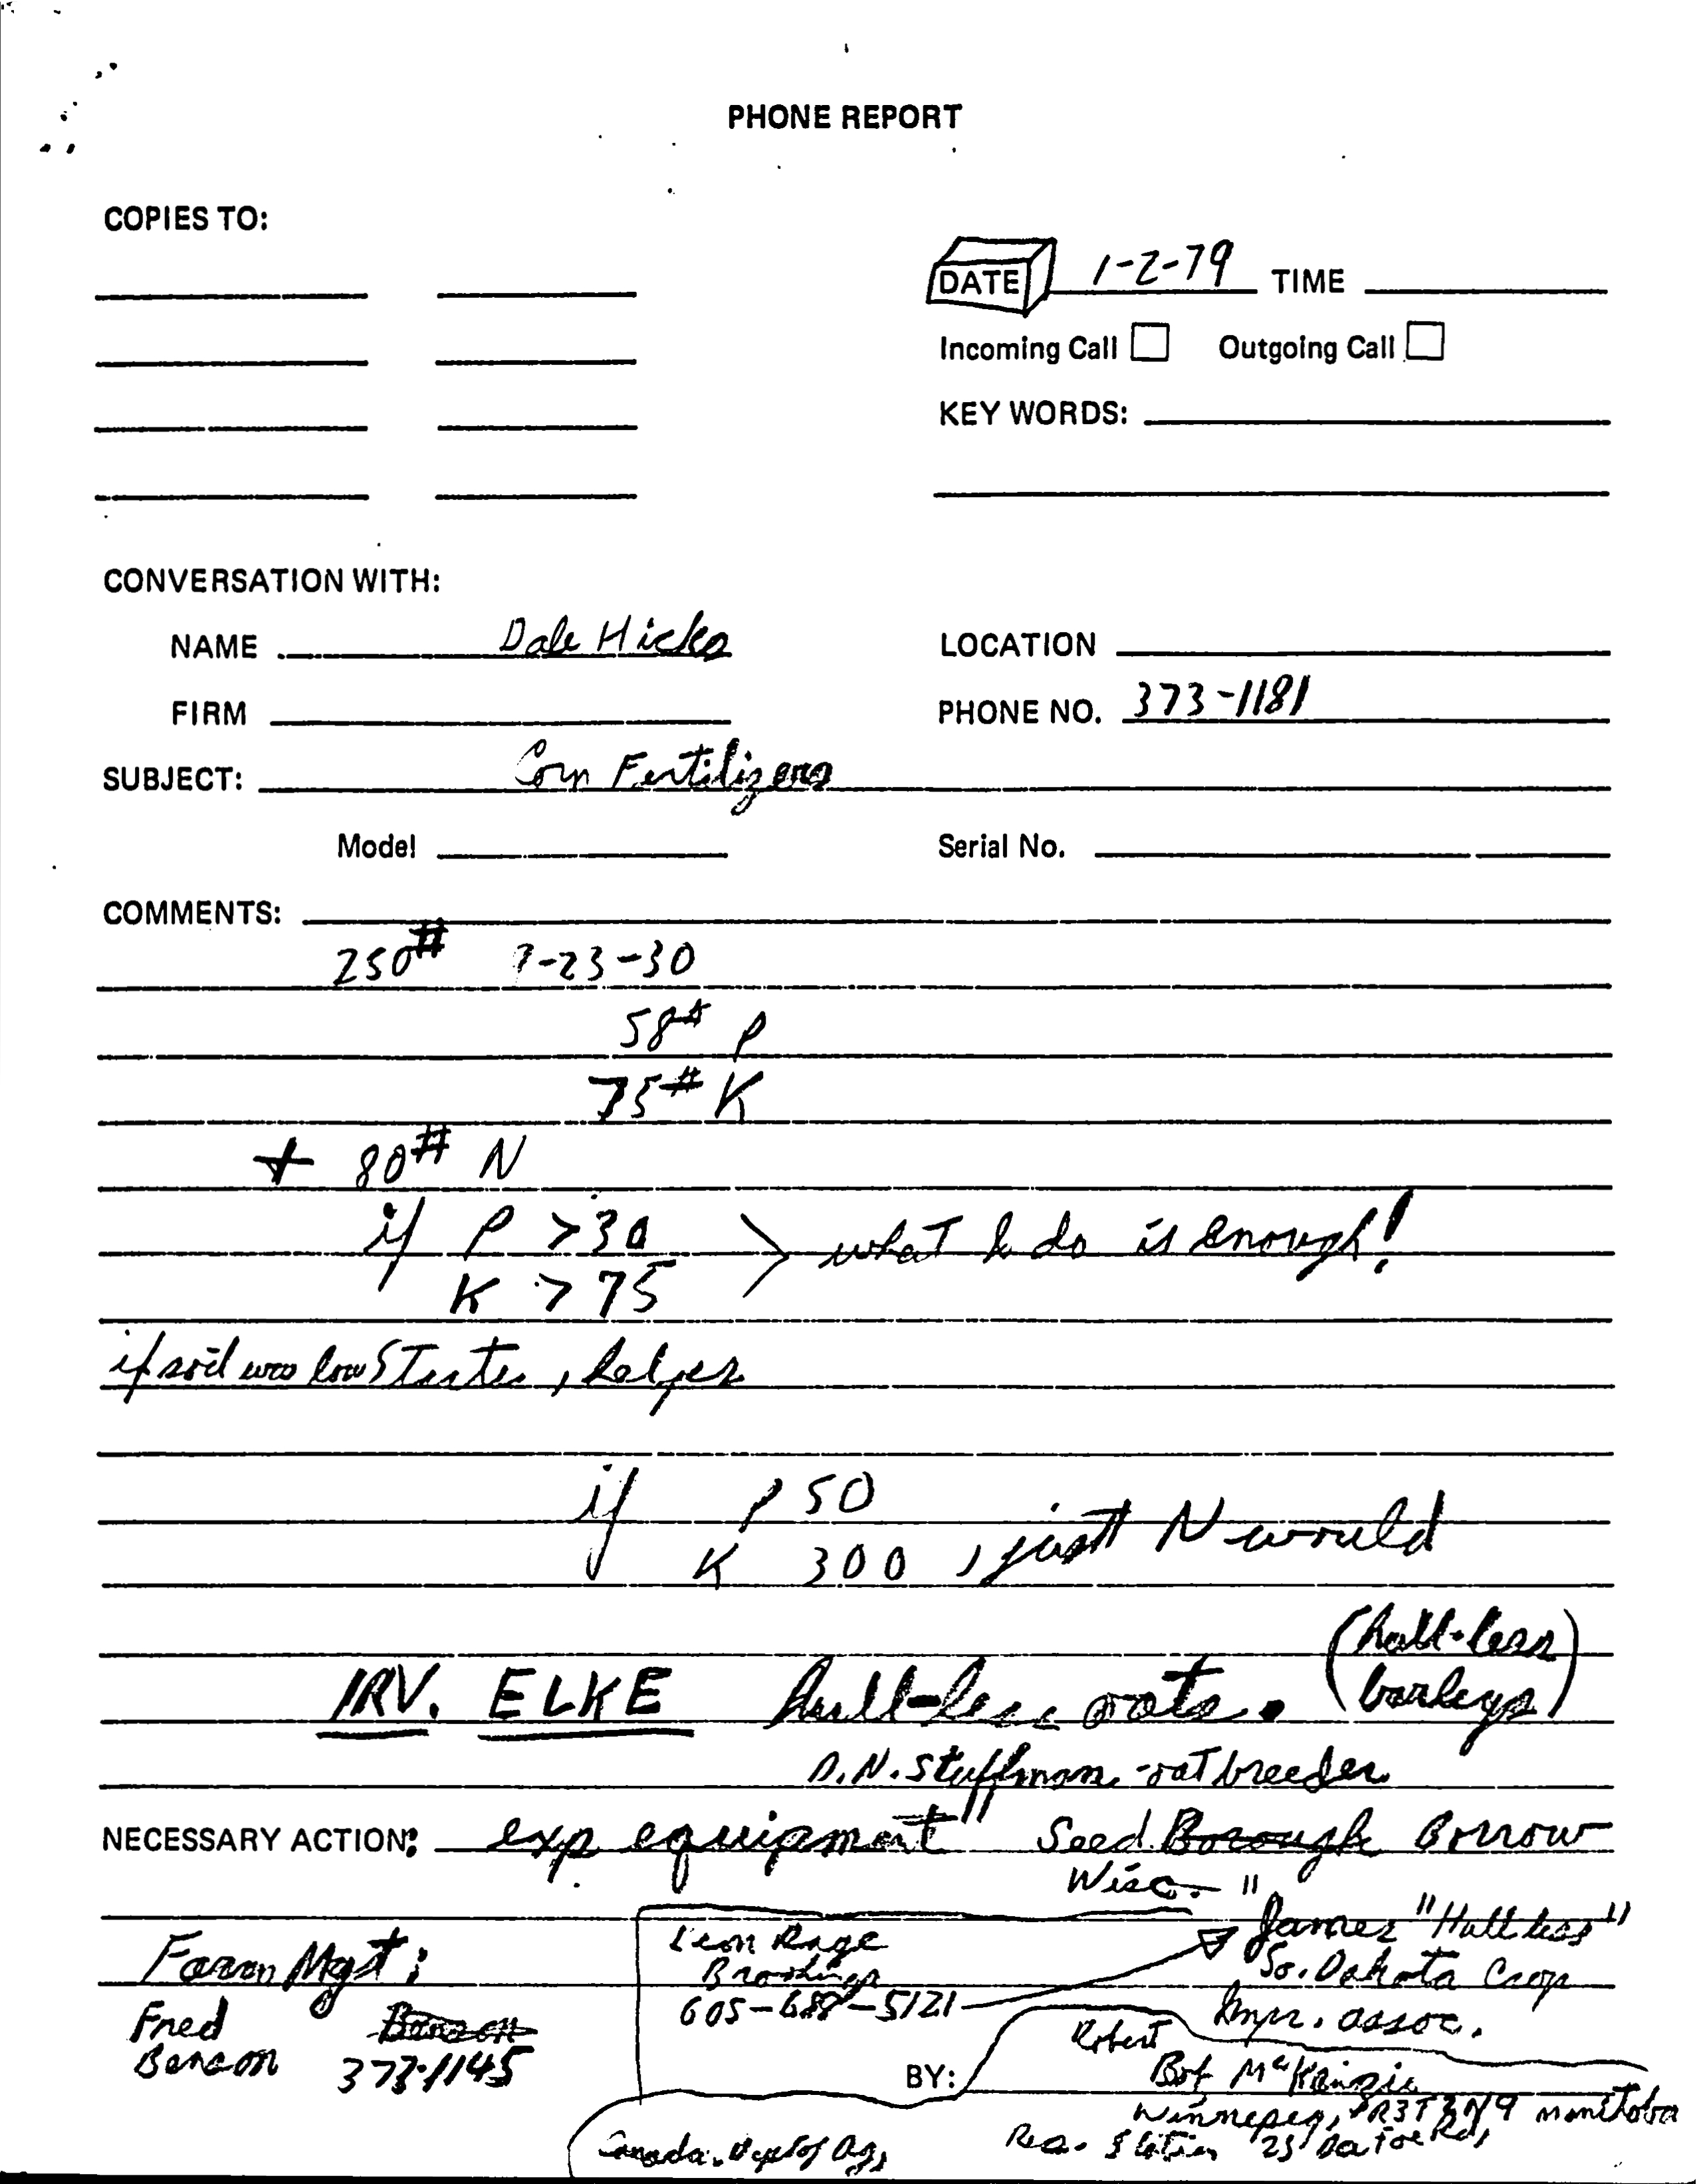 PHONE REPORT
COPIES TO:
DATE 1-2-79 TIME
Incoming Call Outgoing Call
KEY WORDS:
CONVERSATION WITH:
NAME Dale Hicks LOCATION
FIRM PHONE NO. 373-1181
SUBJECT: Corn Fertilizers
Model Serial No.
COMMENTS:
250# ?-23-30
58# P
75# K
+ 80# N
if P >30 > what I do is enough!
K > 75
if soil was low Starter, helps
if P 50
K 300, just N would
(hull-less
IRV. ELKE hull-less oats. barleys)
D.N. Stuffman - oat breeder
NECESSARY ACTION: exp equipment Seed Borough Borrow
Wisc. "
Leon Rage James "Hull less"
Farm Mgt: Brookings So. Dakota Crop
Fred Benson 605-688-5121 Impr. assoc.
Benson 373-1145 Robert
BY: Bob McKenzie
Winnepeg, R3T 2N9 Manitoba
Canada. Dept of Ag, Res. Station 25 Rd,